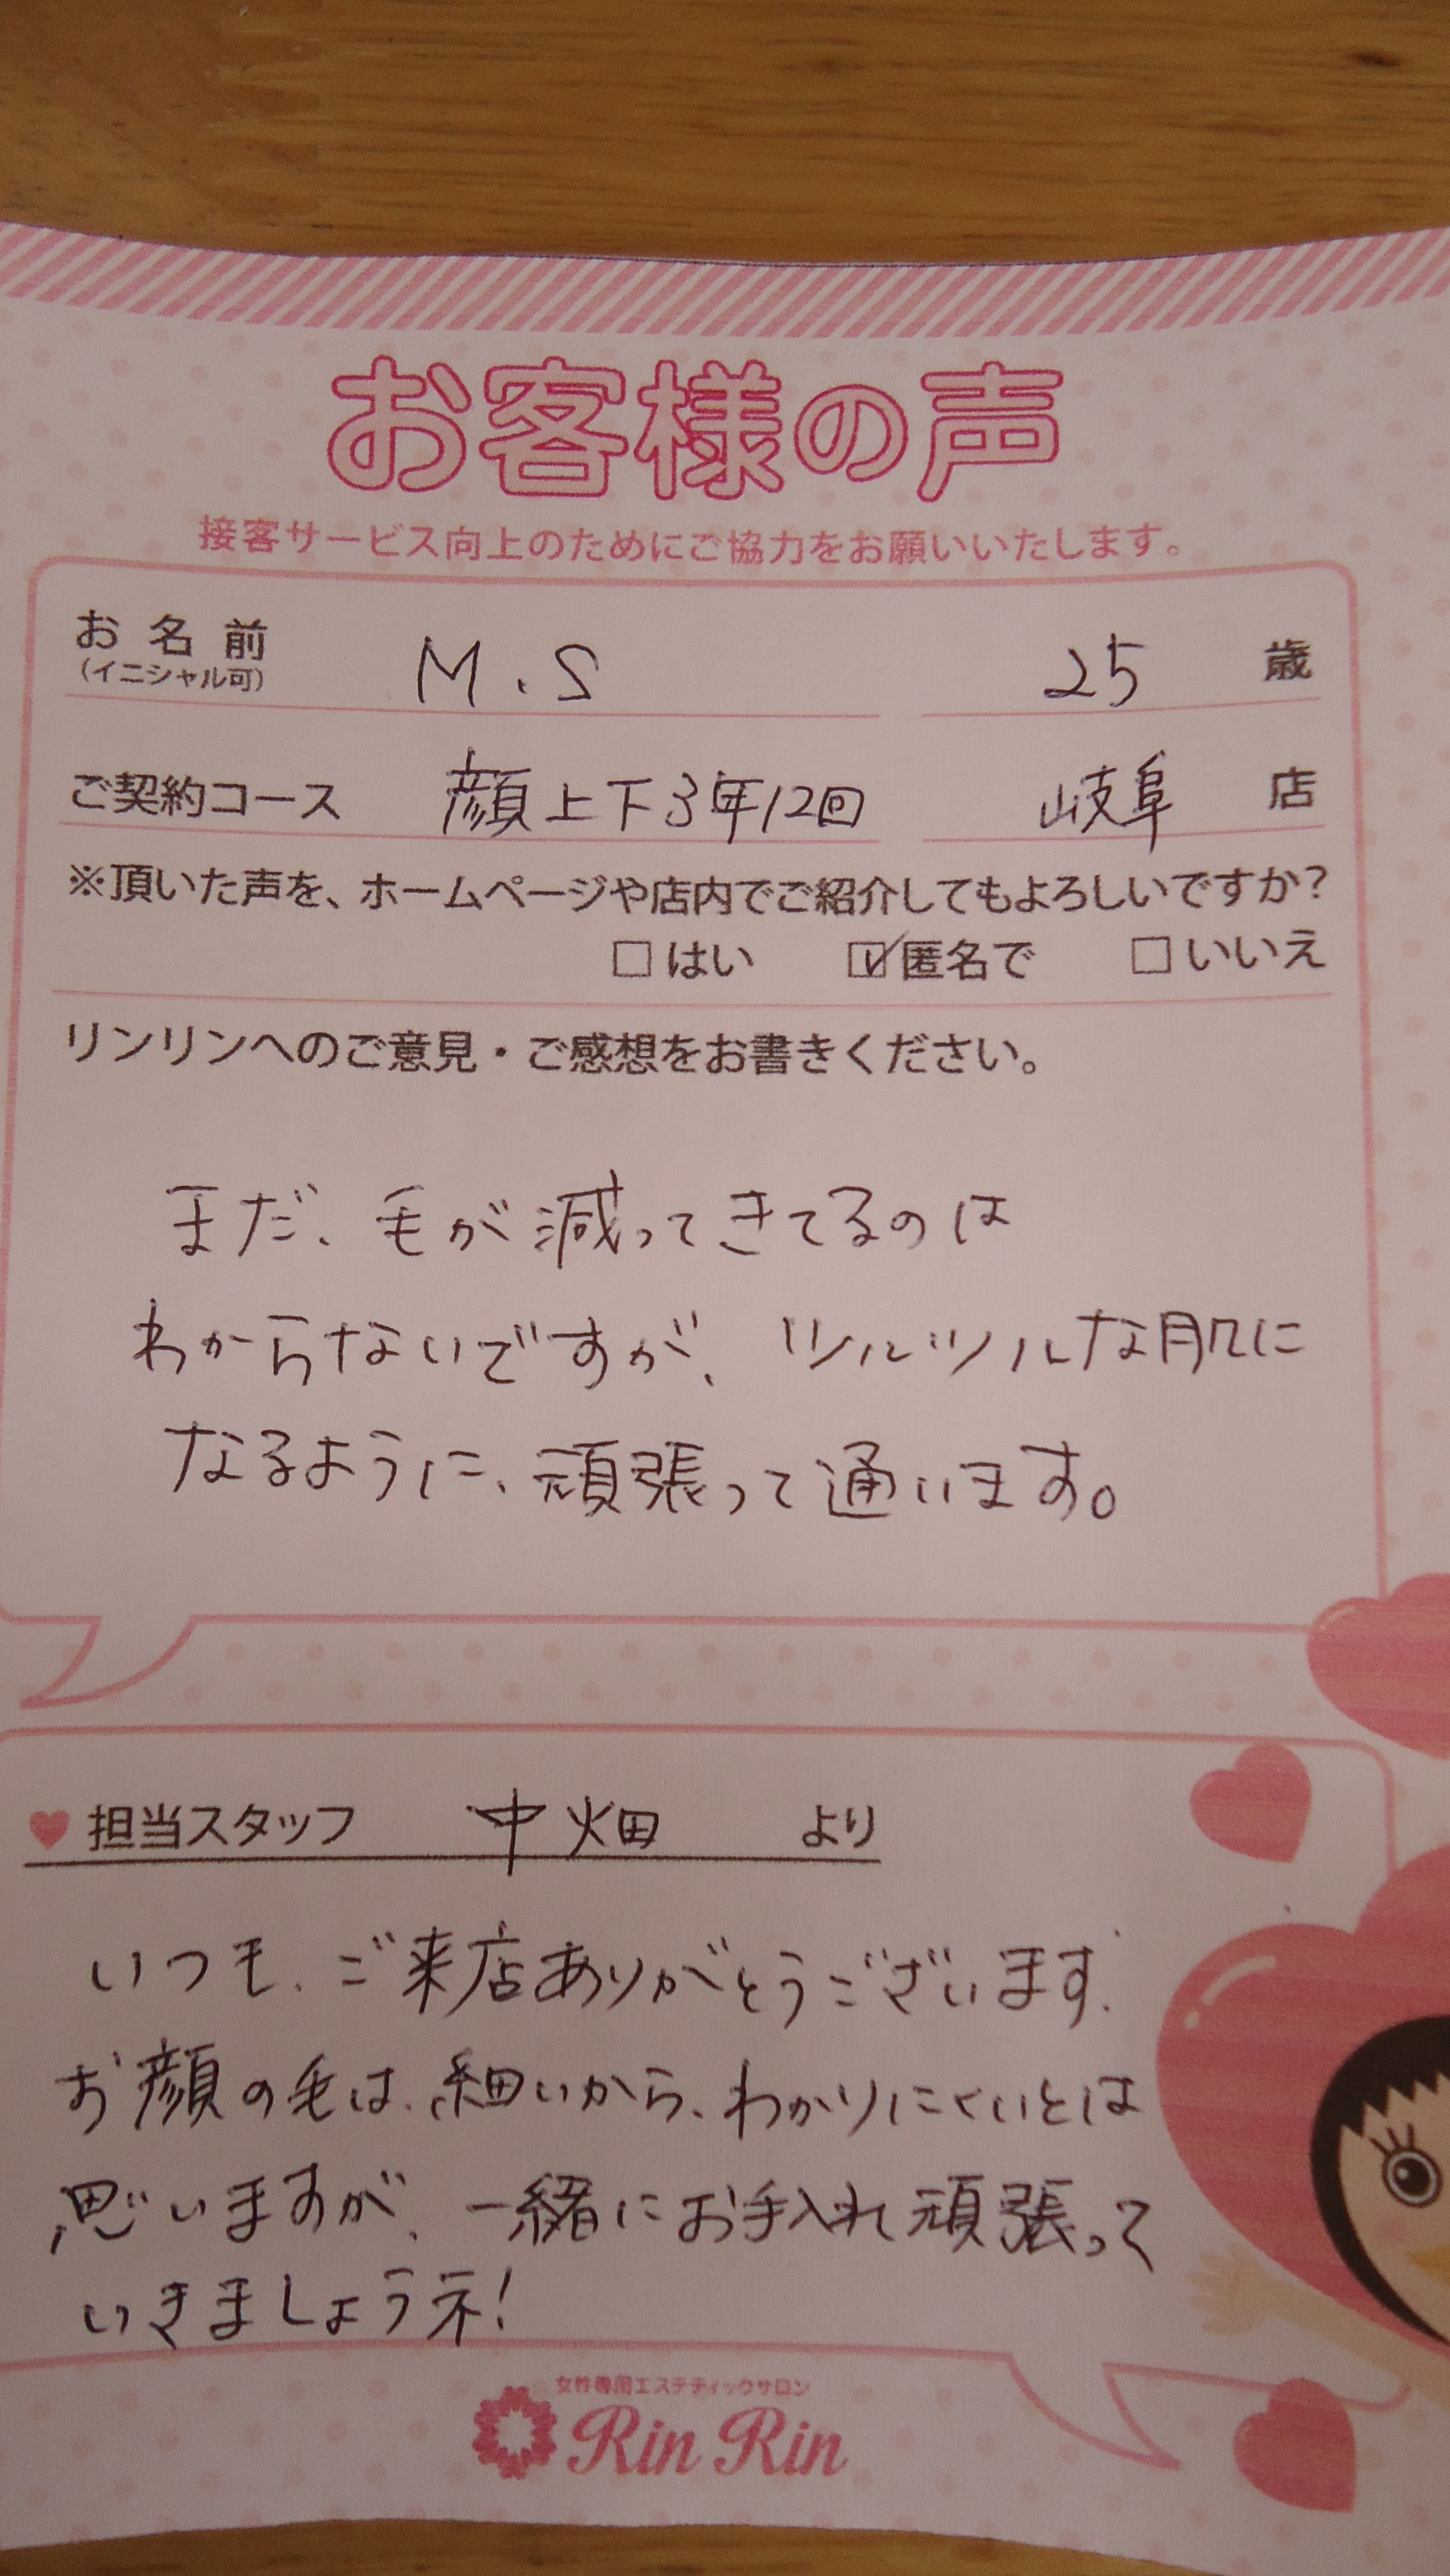 お客様の声
接客サービス向上のためにご協力をお願いいたします。
お名前 M.S 25 歳
(イニシャル可)
ご契約コース 顔上下3年12回 岐阜 店
※頂いた声を、ホームページや店内でご紹介してもよろしいですか?
□はい ☑匿名で □いいえ
リンリンへのご意見・ご感想をお書きください。
まだ、毛が減ってきてるのは
わからないですが、ツルツルな肌に
なるように、頑張って通います。
♥担当スタッフ 中畑 より
いつも、ご来店ありがとうございます.
お顔の毛は、細いから、わかりにくいとは
思いますが、一緒にお手入れ頑張って
いきましょうネ!
女性専用エステティックサロン
Rin Rin